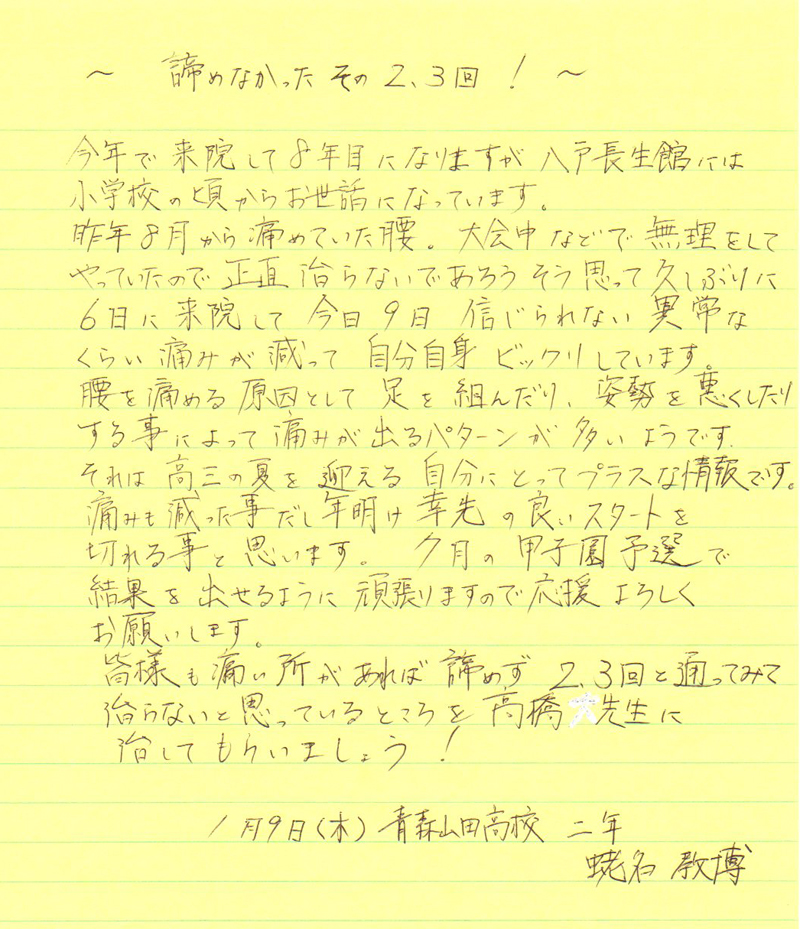 ～ 諦めなかった その2、3回！ ～
今年で来院して8年目になりますが八戸長生館には
小学校の頃からお世話になっています。
昨年8月から痛めていた腰。大会中などで無理をして
やっていたので正直治らないであろうそう思って久しぶりに
6日に来院して今日9日信じられない異常な
くらい痛みが減って自分自身ビックリしています。
腰を痛める原因として足を組んだり、姿勢を悪くしたり
する事によって痛みが出るパターンが多いようです.
それは高三の夏を迎える自分にとってプラスな情報です。
痛みも減った事だし年明け幸先の良いスタートを
切れる事と思います。 7月の甲子園予選で
結果を出せるように頑張りますので応援よろしく
お願いします。
皆様も痛い所があれば諦めず2、3回と通ってみて
治らないと思っているところを高橋大先生に
治してもらいましょう！
1月9日(木) 青森山田高校 二年
蛯名 教博